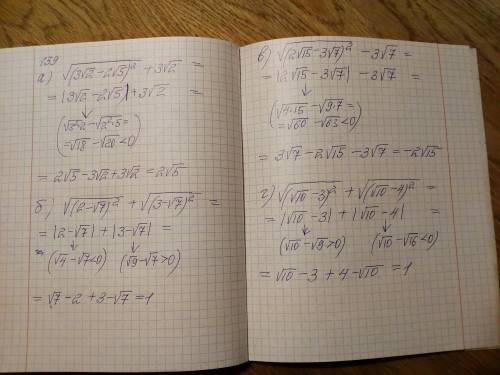 139
а) √(3√2-2√5)² + 3√2 =
= |3√2 - 2√5| + 3√2 =
(√3²·2 - √2²·5 =
= √18 - √20 < 0)
= 2√5 - 3√2 + 3√2 = 2√5
б) √(2-√7)² + √(3-√7)² =
= |2-√7| + |3-√7| =
(√4 - √7 < 0) (√9 - √7 > 0)
= √7 - 2 + 3 - √7 = 1
в) √(2√15 - 3√7)² - 3√7 =
= |2√15 - 3√7| - 3√7 =
(√4·15 - √9·7 =
= √60 - √63 < 0)
= 3√7 - 2√15 - 3√7 = -2√15
г) √(√10 - 3)² + √(√10 - 4)² =
= |√10 - 3| + |√10 - 4| =
(√10 - √9 > 0) (√10 - √16 < 0)
= √10 - 3 + 4 - √10 = 1